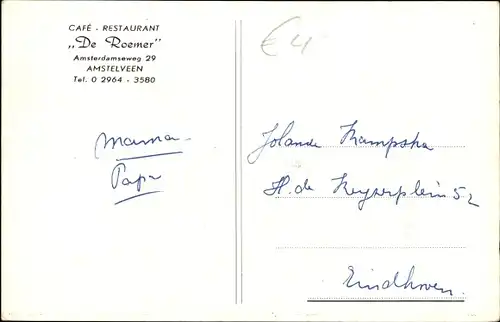 CAFÉ - RESTAURANT
„De Roemer"
Amsterdamseweg 29
AMSTELVEEN
Tel. 0 2964 - 3580
€4
Mama -
Papa
Jolande Kampska
H. de Keyserplein 52
Eindhoven.